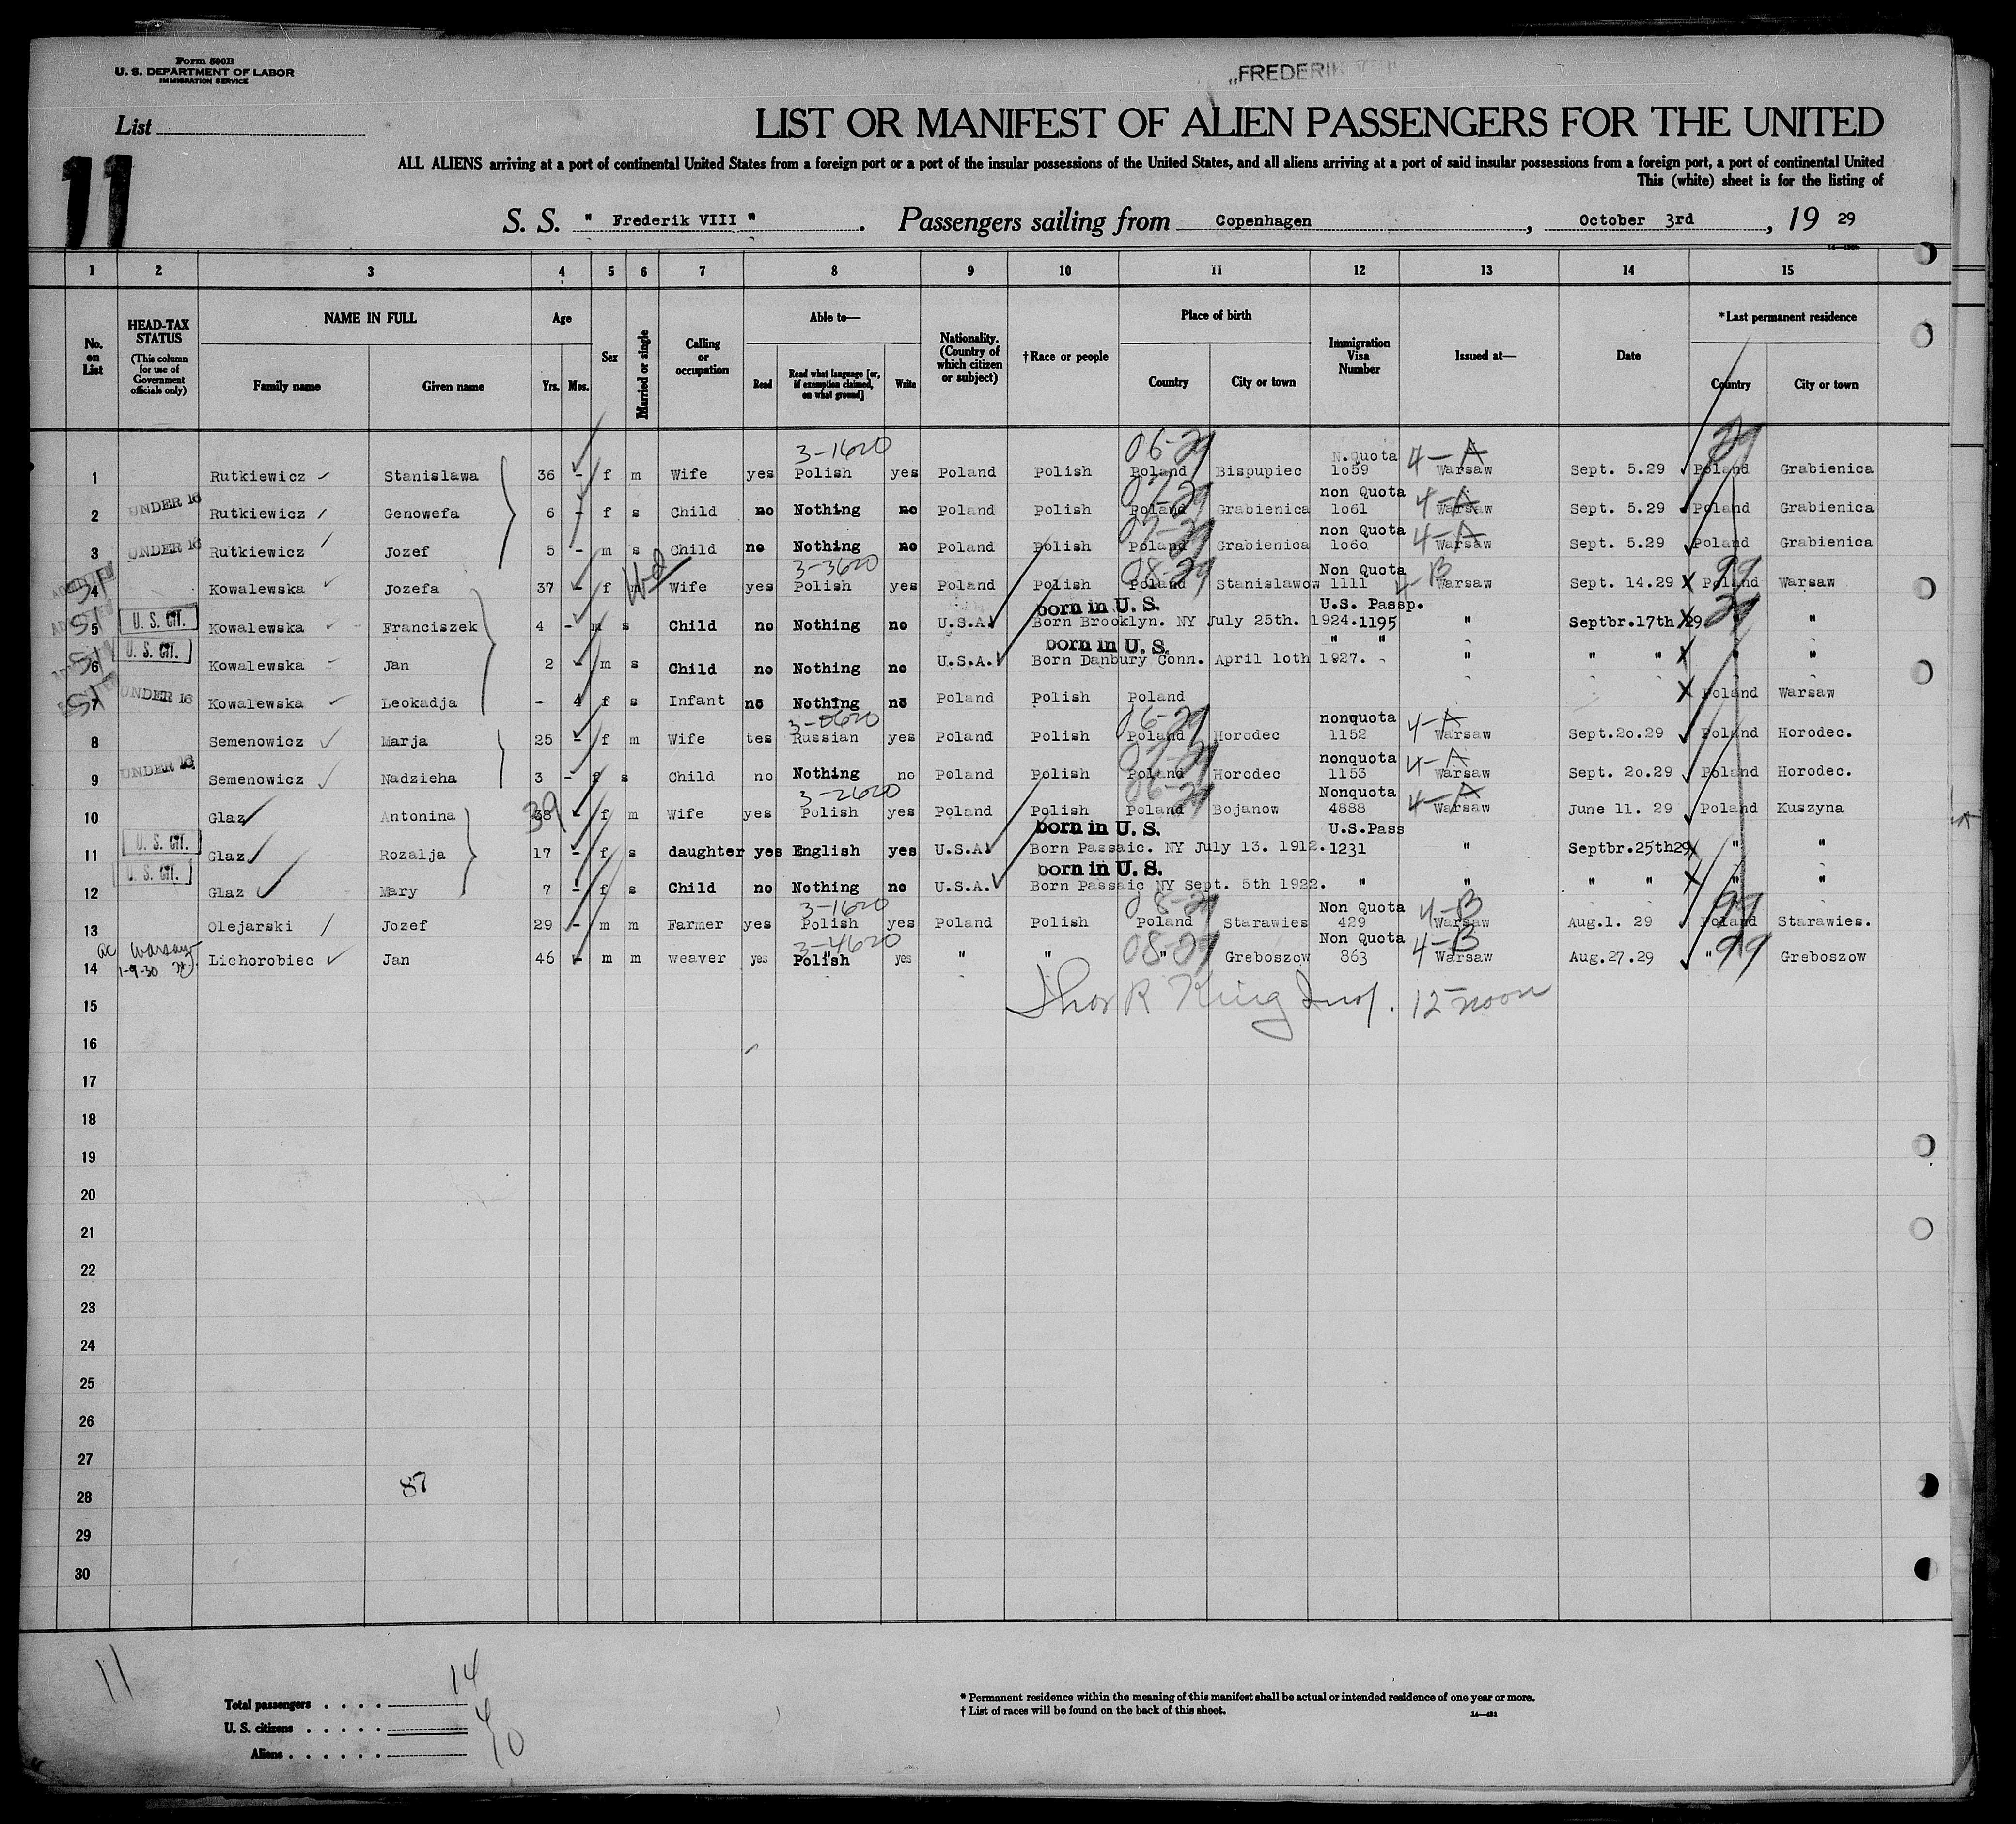 Form 500B
U. S. DEPARTMENT OF LABOR
IMMIGRATION SERVICE
„FREDERIK VIII"
List
11
LIST OR MANIFEST OF ALIEN PASSENGERS FOR THE UNITED
ALL ALIENS arriving at a port of continental United States from a foreign port or a port of the insular possessions of the United States, and all aliens arriving at a port of said insular possessions from a foreign port, a port of continental United
This (white) sheet is for the listing of
S. S. " Frederik VIII " . Passengers sailing from Copenhagen , October 3rd , 19 29
1 2 3 4 5 6 7 8 9 10 11 12 13 14 15
No. on List
HEAD-TAX STATUS (This column for use of Government officials only)
NAME IN FULL
Family name Given name
Age
Yrs. Mos.
Sex
Married or single
Calling or occupation
Able to—
Read Read what language [or, if exemption claimed, on what ground] Write
Nationality. (Country of which citizen or subject)
† Race or people
Place of birth
Country City or town
Immigration Visa Number
Issued at—
Date
* Last permanent residence
Country City or town
3-1620 06-29 N.Quota 4-A 29
1 Rutkiewicz Stanislawa 36 - f m Wife yes Polish yes Poland Polish Poland Bispupiec 1o59 Warsaw Sept. 5.29 Poland Grabienica
UNDER 16 07-29 non Quota 4-A
2 Rutkiewicz Genowefa 6 - f s Child no Nothing no Poland Polish Poland Grabienica 1o61 Warsaw Sept. 5.29 Poland Grabienica
UNDER 16 07-29 non Quota 4-A
3 Rutkiewicz Jozef 5 - m s Child no Nothing no Poland Polish Poland Grabienica 1o6o Warsaw Sept. 5.29 Poland Grabienica
Wd 3-3620 08-29 Non Quota 4-B 99
4 Kowalewska Jozefa 37 - f m Wife yes Polish yes Poland Polish Poland Stanislawow 1111 Warsaw Sept. 14.29 X Poland Warsaw
U. S. CIT. born in U. S. U.S. Passp. 29
5 Kowalewska Franciszek 4 - m s Child no Nothing no U.S.A. Born Brooklyn. NY July 25th. 1924. 1195 " Septbr.17th 29. X " "
U. S. CIT. born in U. S. " "
6 Kowalewska Jan 2 - m s Child no Nothing no U.S.A. Born Danbury Conn. April 1oth 1927. " " " X " "
UNDER 16
7 Kowalewska Leokadja - 4 f s Infant no Nothing no Poland Polish Poland X Poland Warsaw
3-0620 06-29 nonquota 4-A
8 Semenowicz Marja 25 - f m Wife tes Russian yes Poland Polish Poland Horodec 1152 Warsaw Sept.2o.29 Poland Horodec.
UNDER 16 07-29 nonquota 4-A
9 Semenowicz Nadzieha 3 - f s Child no Nothing no Poland Polish Poland Horodec 1153 Warsaw Sept. 2o.29 Poland Horodec.
39 3-2620 06-29 Nonquota 4-A
10 Glaz Antonina 38 f m Wife yes Polish yes Poland Polish Poland Bojanow 4888 Warsaw June 11. 29 Poland Kuszyna
U. S. CIT. born in U. S. U.S.Pass
11 Glaz Rozalja 17 - f s daughter yes English yes U.S.A. Born Passaic. NY July 13. 1912. 1231 " Septbr.25th29 X " "
U. S. CIT. born in U. S.
12 Glaz Mary 7 - f s Child no Nothing no U.S.A. Born Passaic NY Sept. 5th 1922. " " " " X " "
3-1620 08-29 Non Quota 4-B 99
13 Olejarski Jozef 29 - m m Farmer yes Polish yes Poland Polish Poland Starawies 429 Warsaw Aug.1. 29 Poland Starawies.
ac Warsaw 3-4620 08-29 Non Quota 4-B 99
14 1-9-30 Lichorobiec Jan 46 - m m weaver yes Polish yes " " " Greboszow 863 Warsaw Aug.27.29 " Greboszow
15 Thos R King Insp. 12 noon
16
17
18
19
20
21
22
23
24
25
26
27
28 87
29
30
11
Total passengers . . . . 14
U. S. citizens . . . . . 4
Aliens . . . . . . 10
* Permanent residence within the meaning of this manifest shall be actual or intended residence of one year or more.
† List of races will be found on the back of this sheet. 14—421